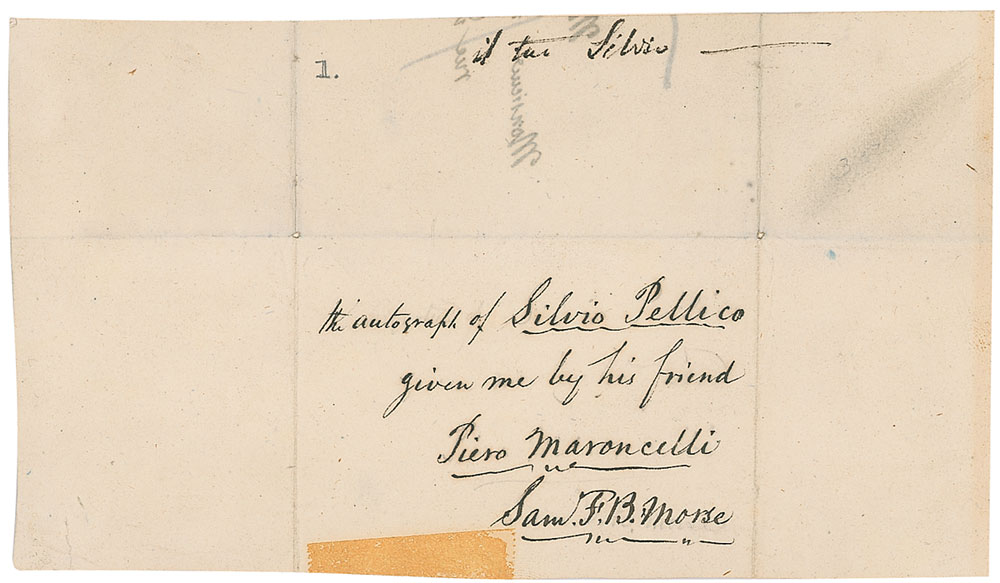 il tuo Silvio
1.
the autograph of Silvio Pellico
given me by his friend
Piero Maroncelli
Sam. F. B. Morse